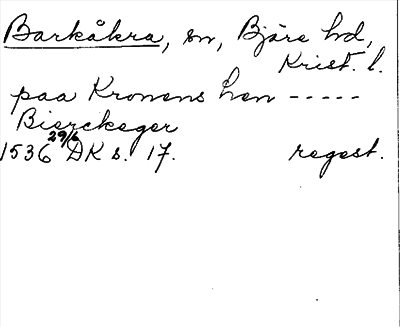 Barkåkra, sn, Bjäre hd,
Krist. l.
paa Kronens hen -----
Bierckeger
1536 29/6 DK s. 17. regest.